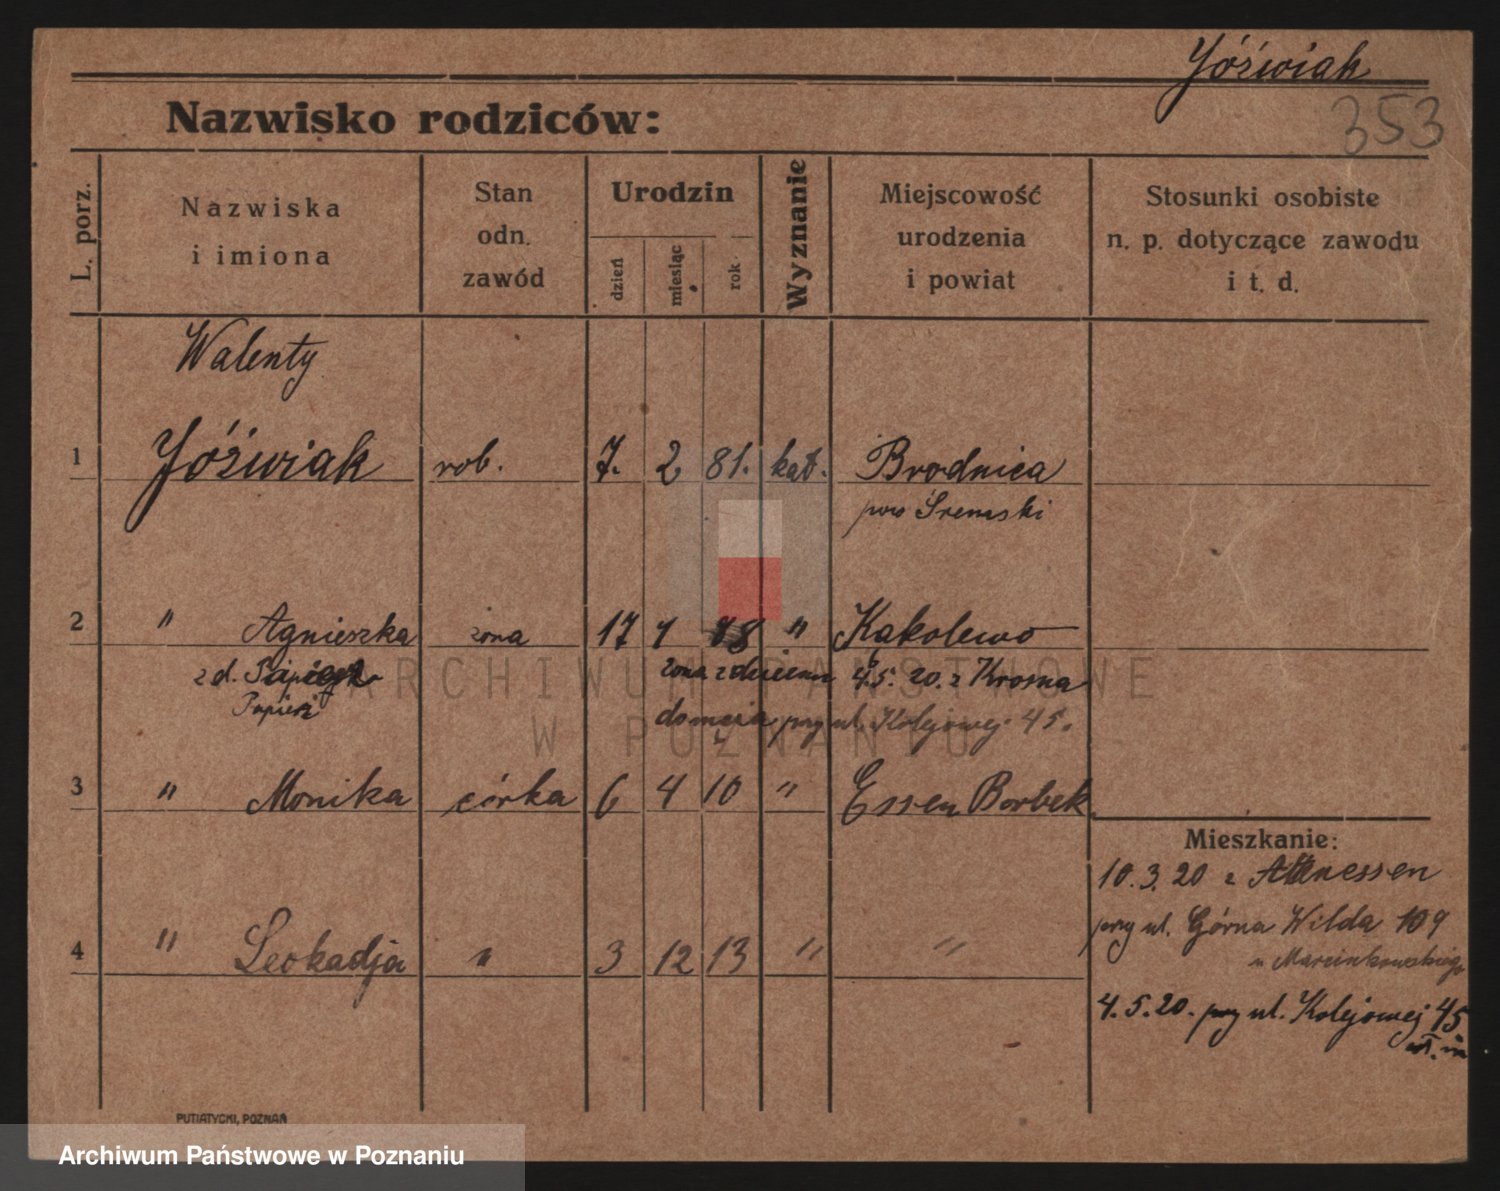 Jóźwiak
353
Nazwisko rodziców:
L. porz.
Nazwiska
i imiona
Stan
odn.
zawód
Urodzin
dzień
miesiąc
rok
Wyznanie
Miejscowość
urodzenia
i powiat
Stosunki osobiste
n. p. dotyczące zawodu
i t. d.
Walenty
1 Jóźwiak rob. 7. 2 81. kat. Brodnica
pow Śremski
2 " Agnieszka żona 17 1 78 " Kąkolewo
z d. żona z dziećmi 4.5. 20. z Krosna
Papież
do męża przy ul. Kolejowej 45.
3 " Monika córka 6 4 10 " Essen Borbek
4 " Leokadja " 3 12 13 " "
Mieszkanie:
10.3.20 z
przy ul. Górna Wilda 109
u Marcinkowskiego
4.5.20. przy ul. Kolejowej 45
PUTIATYCKI, POZNAŃ
ARCHIWUM PAŃSTWOWE
W POZNANIU
Archiwum Państwowe w Poznaniu